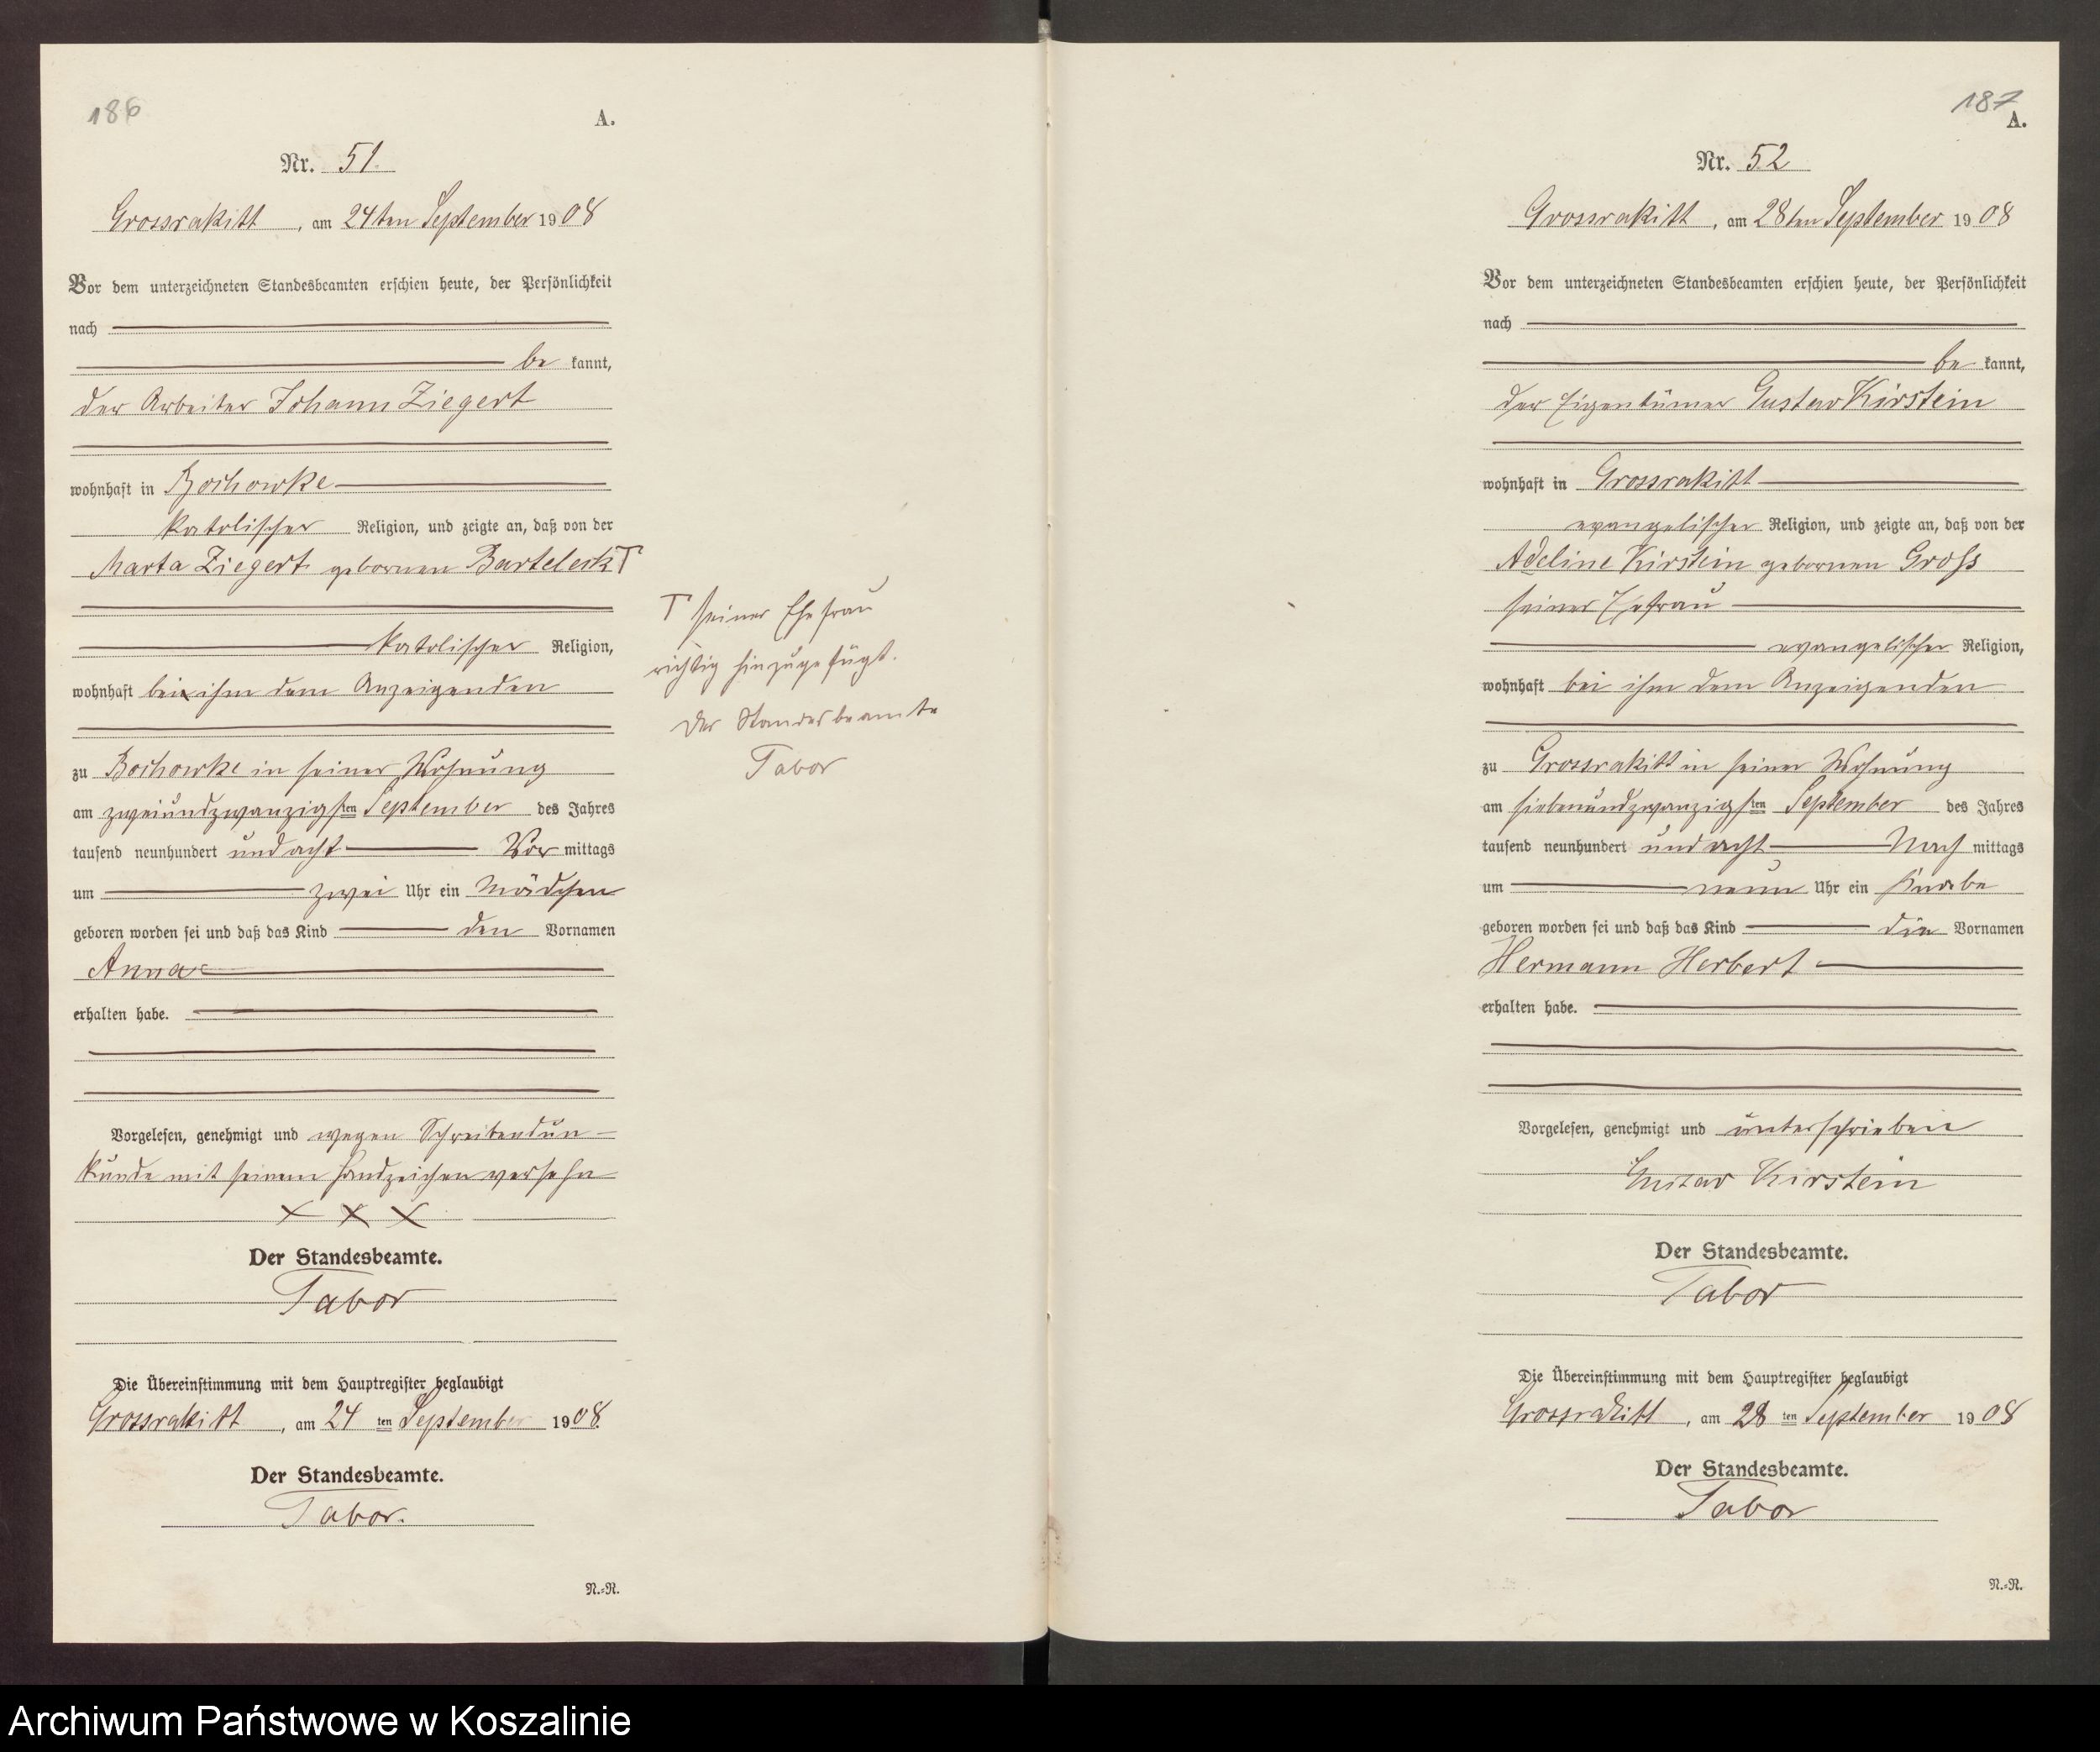 186
A.
Nr. 51.
Grossrakitt, am 24ten September 1908
Vor dem unterzeichneten Standesbeamten erschien heute, der Persönlichkeit
nach
be kannt,
der Arbeiter Johann Ziegert
wohnhaft in Bochowke
katolischer Religion, und zeigte an, daß von der
Marta Ziegert gebornen Barteleck T
katolischer Religion,
wohnhaft bei ihm dem Anzeigenden
zu Bochowke in seiner Wohnung
am zweiundzwanzigsten September des Jahres
tausend neunhundert und acht Vor mittags
um zwei Uhr ein Mädchen
geboren worden sei und daß das Kind den Vornamen
Anna
erhalten habe.
Vorgelesen, genehmigt und wegen Schreibendun-
kunde mit seinem Handzeichen versehn
X X X
Der Standesbeamte.
Tabor
Die Übereinstimmung mit dem Hauptregister beglaubigt
Grossrakitt, am 24 ten September 1908.
Der Standesbeamte.
Tabor.
N.=N.
T seiner Ehefrau
richtig hinzugefügt.
Der Standesbeamte
Tabor
187
A.
Nr. 52
Grossrakitt, am 28ten September 1908
Vor dem unterzeichneten Standesbeamten erschien heute, der Persönlichkeit
nach
be kannt,
der Eigentümer Gustav Kirstein
wohnhaft in Grossrakitt
evangelischer Religion, und zeigte an, daß von der
Adeline Kirstein gebornen Groß
seiner Ehefrau
evangelischer Religion,
wohnhaft bei ihm dem Anzeigenden
zu Grossrakitt in seiner Wohnung
am siebenundzwanzigsten September des Jahres
tausend neunhundert und acht Nach mittags
um neun Uhr ein Knabe
geboren worden sei und daß das Kind die Vornamen
Hermann Herbert
erhalten habe.
Vorgelesen, genehmigt und unterschrieben
Gustav Kirstein
Der Standesbeamte.
Tabor
Die Übereinstimmung mit dem Hauptregister beglaubigt
Grossrakitt, am 28 ten September 1908
Der Standesbeamte.
Tabor
N.=N.
Archiwum Państwowe w Koszalinie